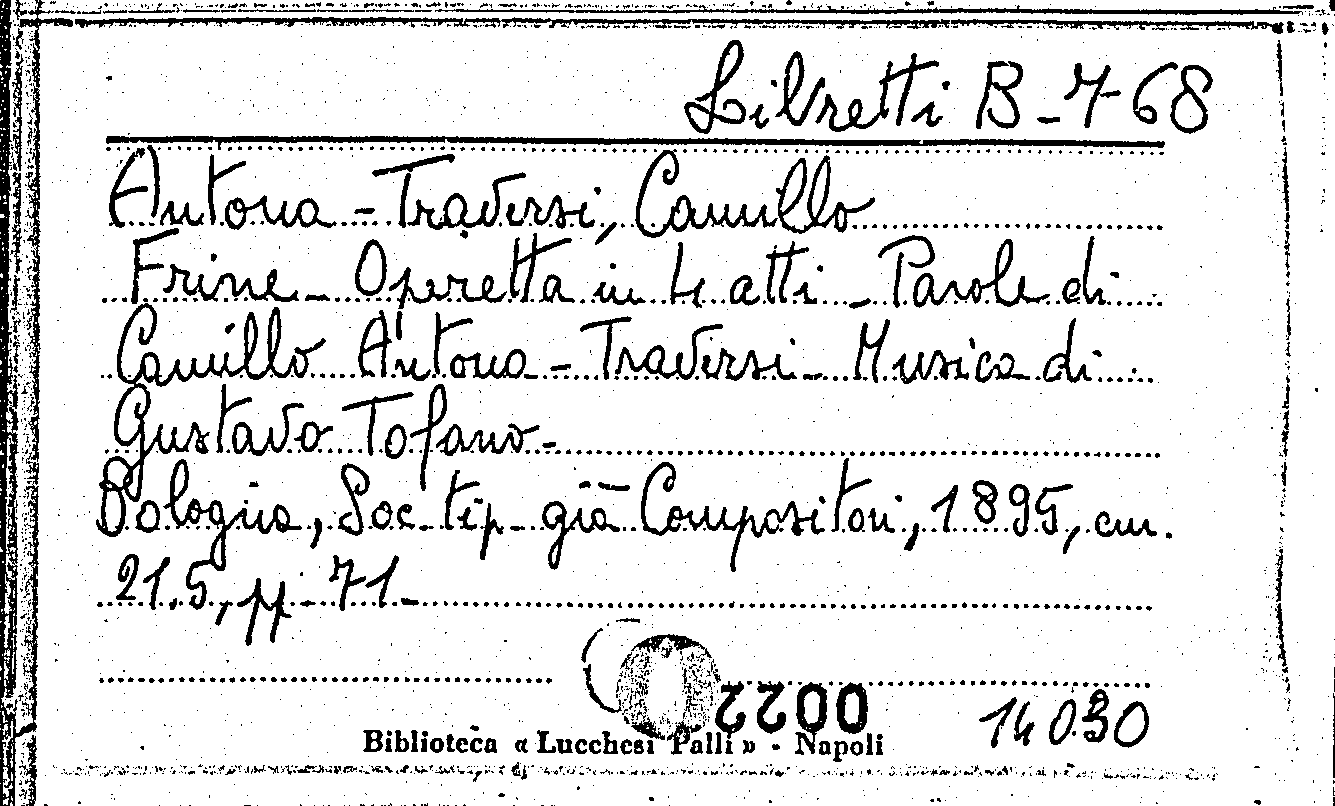 Libretti B-7-68
Antona-Traversi, Camillo
Frine - Operetta in 4 atti - Parole di
Camillo Antona-Traversi - Musica di
Gustavo Tofano -
Bologna, Soc. tip. già Compositori, 1895, cm.
21.5, pp. 71 -
0022
14030
Biblioteca « Lucchesi Palli » - Napoli